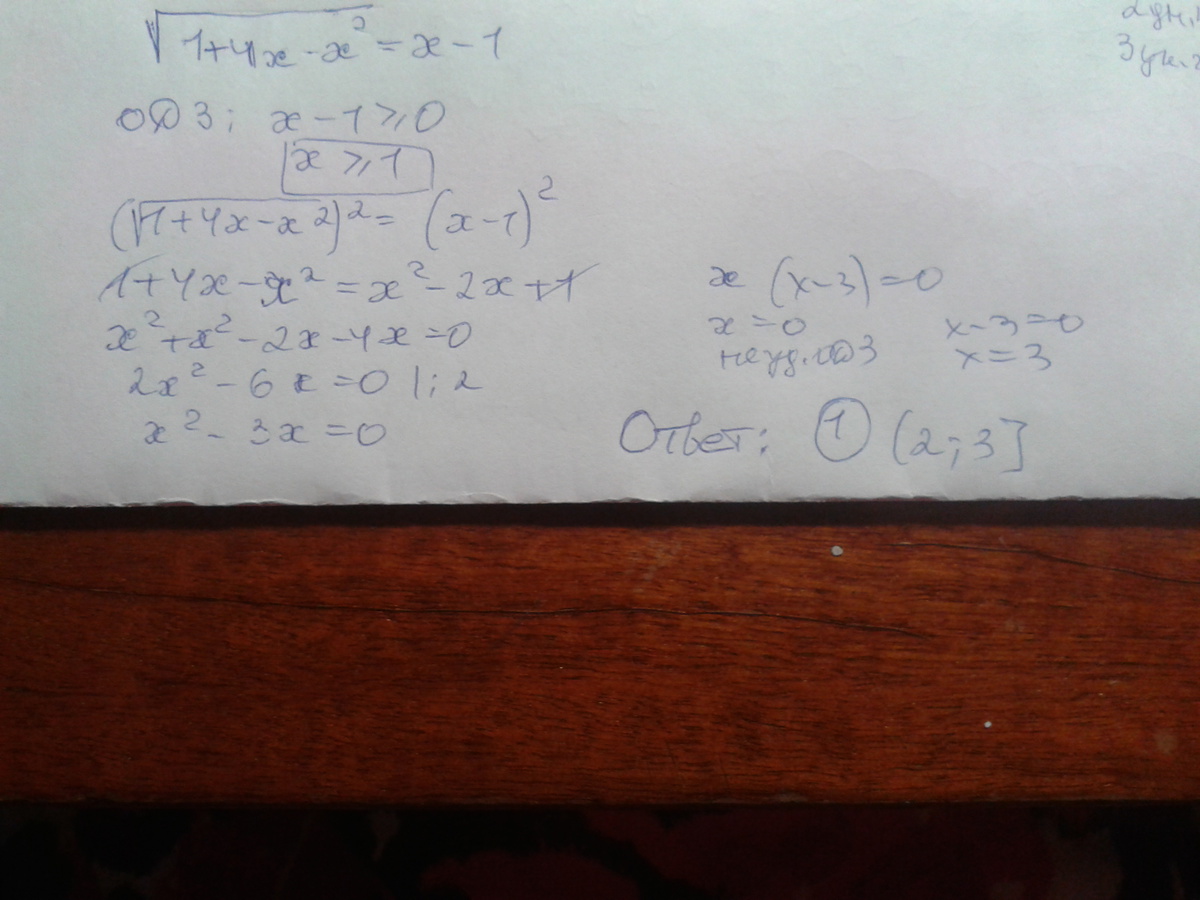 √1+4x-x² = x-1
ОДЗ; x-1 ≥ 0
x ≥ 1
(√1+4x-x²)² = (x-1)²
1+4x-x² = x²-2x+1
x²+x²-2x-4x=0
2x²-6x=0 |:2
x²-3x=0
x (x-3)=0
x=0 x-3=0
не уд. ОДЗ x=3
Ответ: 1 (2;3]